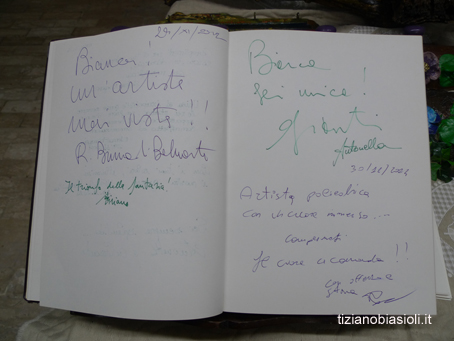 29/10/2012
Bianca!
un artista
mai vista!!
R. Bruna
Il trionfo della fantasia!
Miriana
Bianca
sei unica!
Antonella
30/10/2012
Artista poliedrica
con un cuore immenso....
complimenti
Il cuore comanda!!
con stima
tizianobiasioli.it